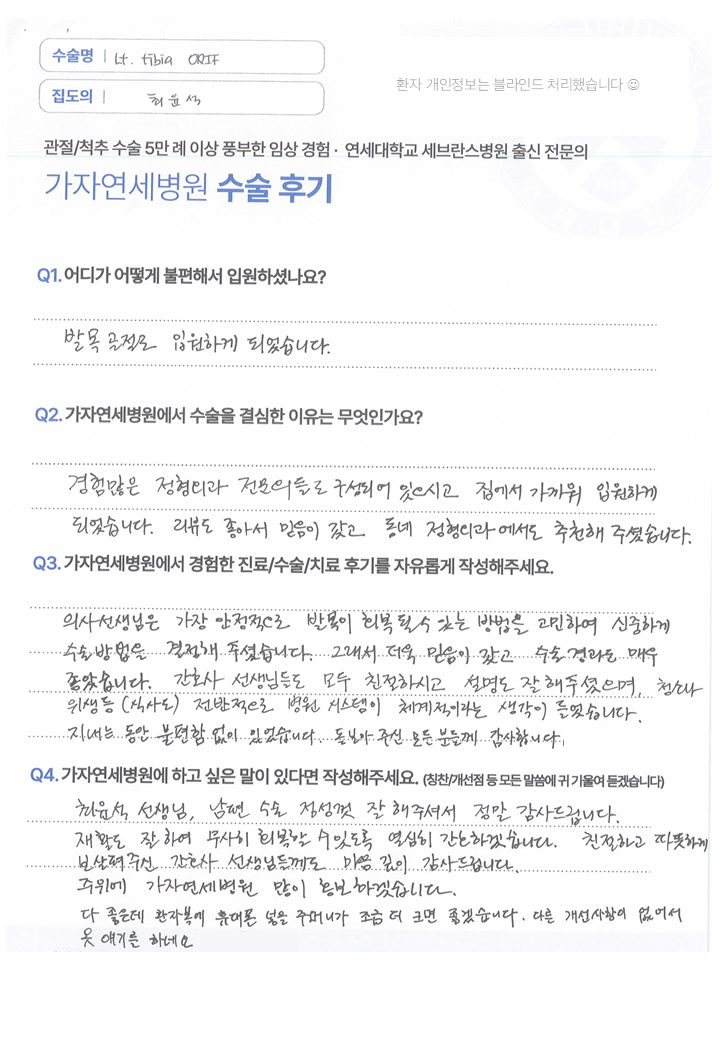 수술명 | Lt. tibia ORIF
집도의 | 최윤석
환자 개인정보는 블라인드 처리했습니다 ☺
관절/척추 수술 5만 례 이상 풍부한 임상 경험 · 연세대학교 세브란스병원 출신 전문의
가자연세병원 수술 후기
Q1. 어디가 어떻게 불편해서 입원하셨나요?
발목 골절로 입원하게 되었습니다.
Q2. 가자연세병원에서 수술을 결심한 이유는 무엇인가요?
경험많은 정형외과 전문의들로 구성되어 있으시고 집에서 가까워 입원하게
되었습니다. 리뷰도 좋아서 믿음이 갔고 동네 정형외과에서도 추천해 주셨습니다.
Q3. 가자연세병원에서 경험한 진료/수술/치료 후기를 자유롭게 작성해주세요.
의사선생님은 가장 안정적으로 발목이 회복될 수 있는 방법을 고민하여 신중하게
수술방법을 결정해 주셨습니다. 그래서 더욱 믿음이 갔고 수술경과도 매우
좋았습니다. 간호사 선생님들도 모두 친절하시고 설명도 잘해주셨으며, 청소나
위생등 (식사도) 전반적으로 병원 시스템이 체계적이라는 생각이 들었습니다.
지내는 동안 불편함 없이 있었습니다. 돌보아 주신 모든분들께 감사합니다.
Q4. 가자연세병원에 하고 싶은 말이 있다면 작성해주세요. (칭찬/개선점 등 모든 말씀에 귀 기울여 듣겠습니다)
최윤석 선생님, 남편 수술 정성껏 잘 해주셔서 정말 감사드립니다.
재활도 잘 하여 무사히 회복할 수 있도록 열심히 간호하겠습니다. 친절하고 따뜻하게
보살펴주신 간호사 선생님들께도 마음 깊이 감사드립니다.
주위에 가자연세병원 많이 홍보하겠습니다.
다 좋은데 환자복에 휴대폰 넣을 주머니가 조금 더 크면 좋겠습니다. 다른 개선사항이 없어서
옷 얘기를 하네요